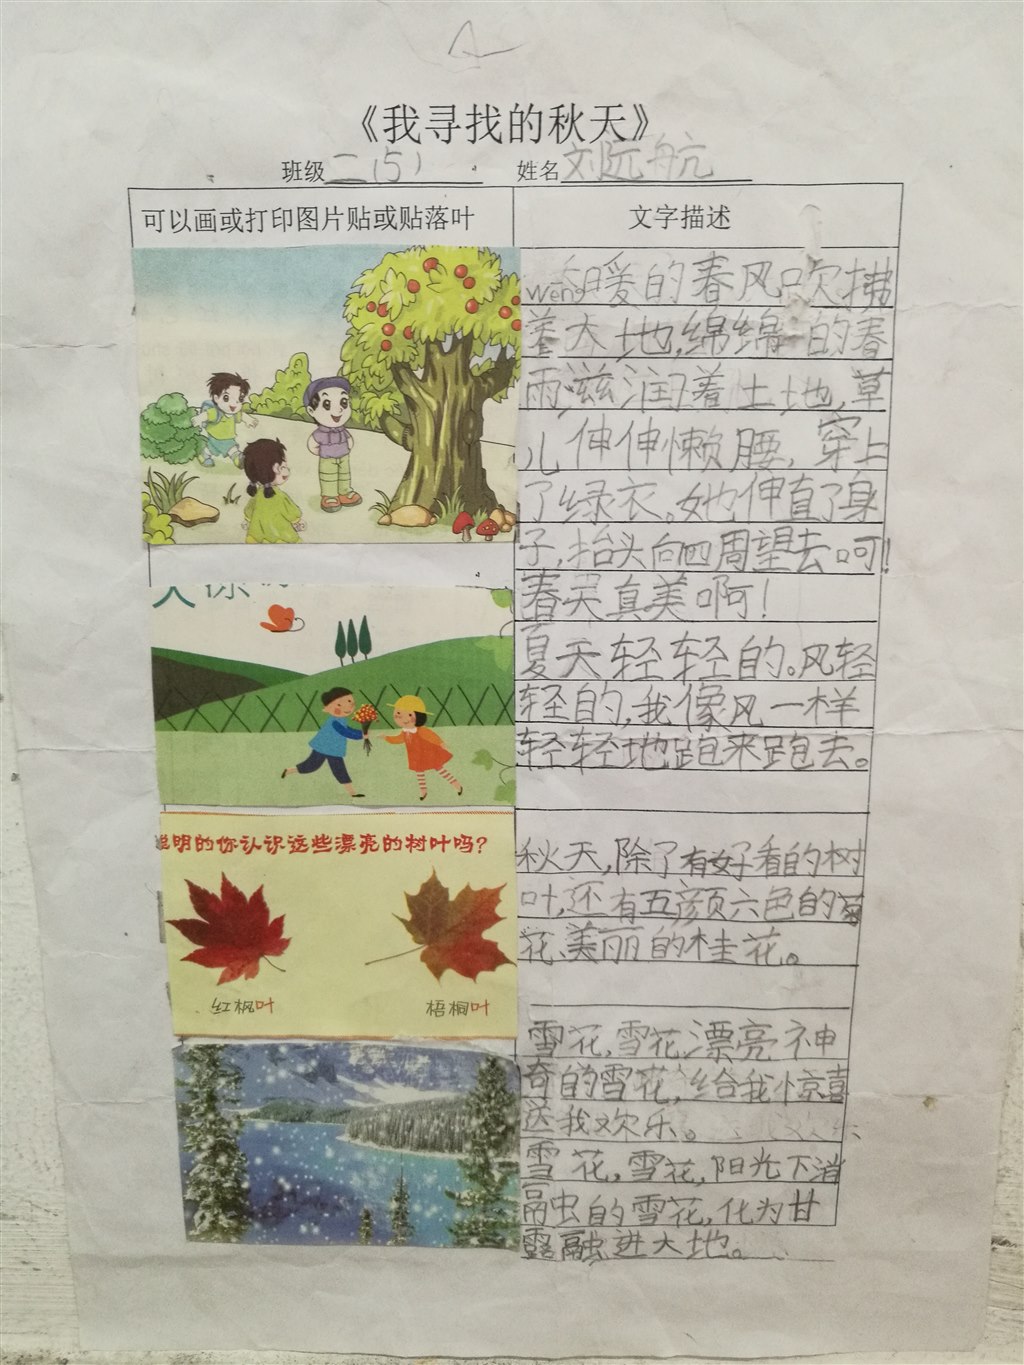 《我寻找的秋天》
班级 二(5) 姓名 刘远航
可以画或打印图片贴或贴落叶
文字描述
weng暖的春风吹拂
着大地,绵绵的春
雨滋润着土地,草
儿伸伸懒腰,穿上
了绿衣。她伸直了身
子,抬头向四周望去呵!
春天真美啊!
夏天轻轻的。风轻
轻的,我像风一样
轻轻地跑来跑去。
聪明的你认识这些漂亮的树叶吗?
红枫叶
梧桐叶
秋天,除了有好看的树
叶,还有五颜六色的菊
花、美丽的桂花。
雪花,雪花,漂亮神
奇的雪花,给我惊喜
送我欢乐。
雪花,雪花,阳光下消
融的雪花,化为甘
露融进大地。